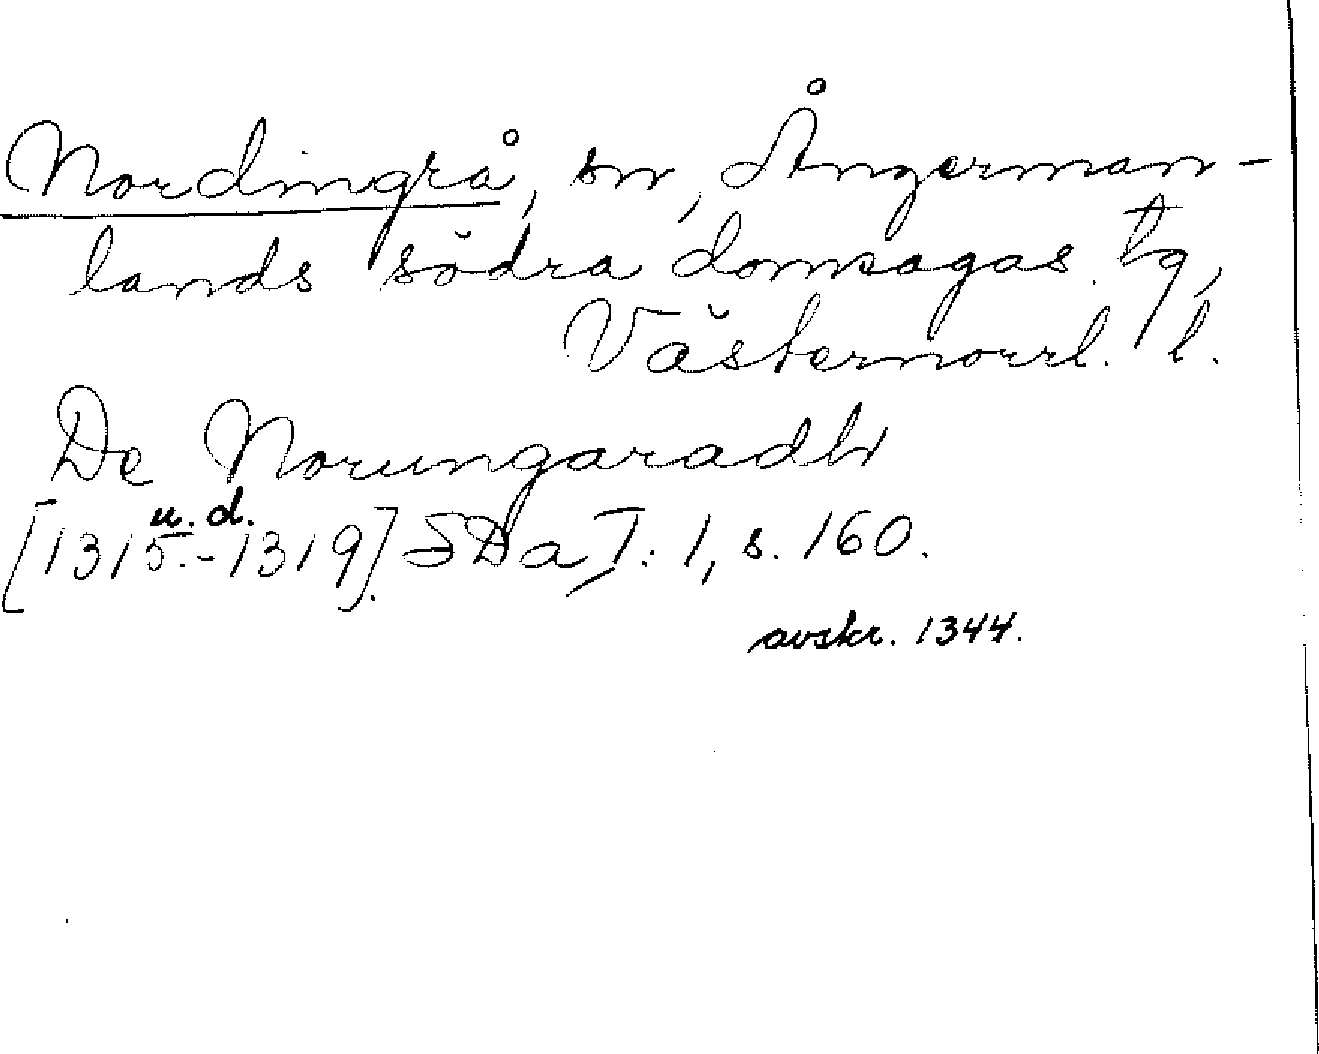 Nordingrå, sn, Ångerman-
lands södra domsagas tg,
Västernorrl. l.
De Norungaradh
u. d.
[1315-1319] SDa I: 1, s. 160.
avskr. 1344.